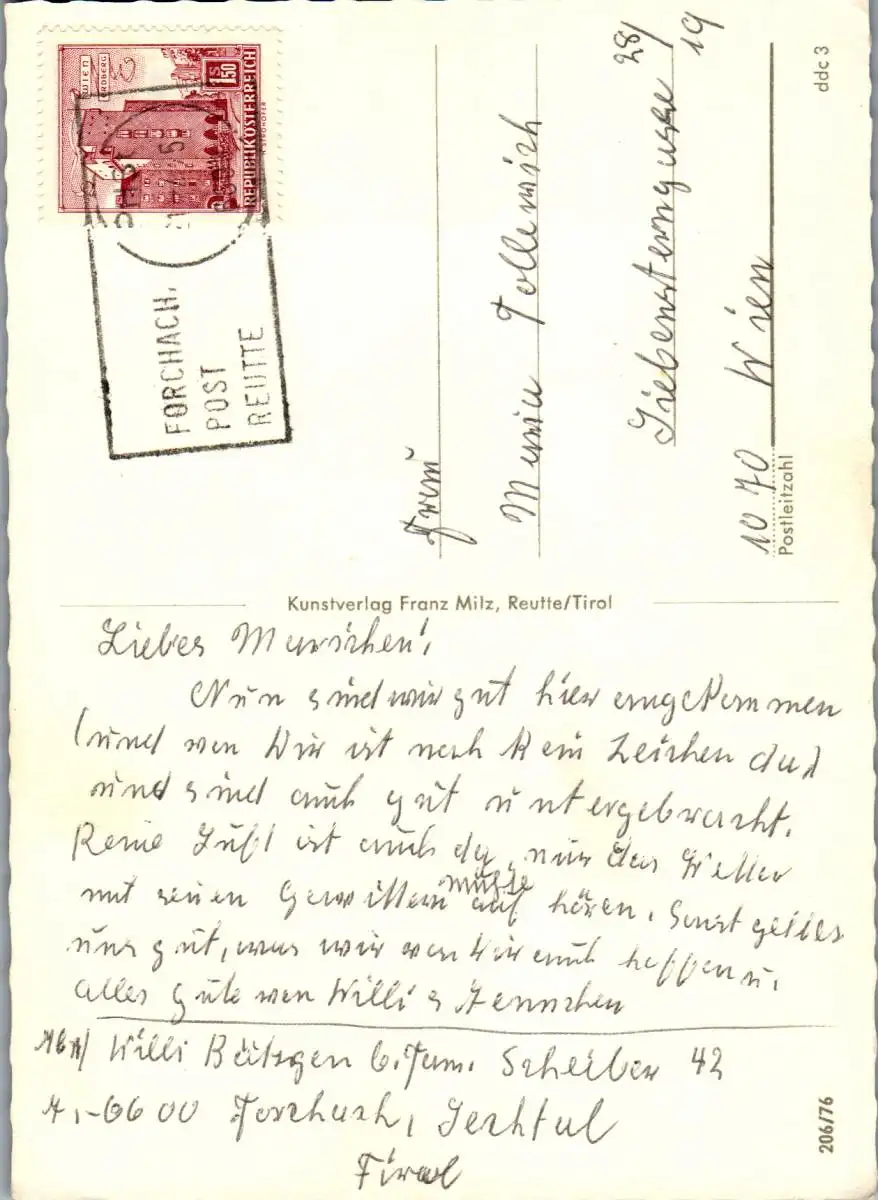 WIEN
ERDBERG
1S50
REPUBLIK ÖSTERREICH
FORCHACH,
POST
REUTTE
Frau
Maria Tollewich
Siebensterngasse 28/
19
1070 Wien
Postleitzahl
ddc 3
Kunstverlag Franz Milz, Reutte/Tirol
Liebes Mariechen!
Nun sind wir gut hier angekommen
(und von Dir ist noch kein Zeichen da)
und sind auch gut untergebracht.
Reine Luft ist auch da, nur das Wetter
mit seinen Gewittern müsste auf hören. Sonst geht es
uns gut, was wir von Dir auch hoffen u.
alles gute von Willi &
Abs/ Willi b. Fam. Scheiber 42
A-6600 Forchach, Lechtal
Tirol
206/76